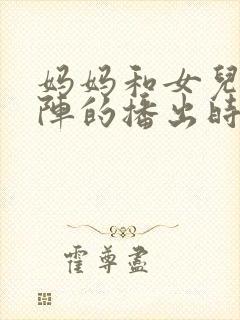 妈妈和女兒
陣的播出時
霍尊盡